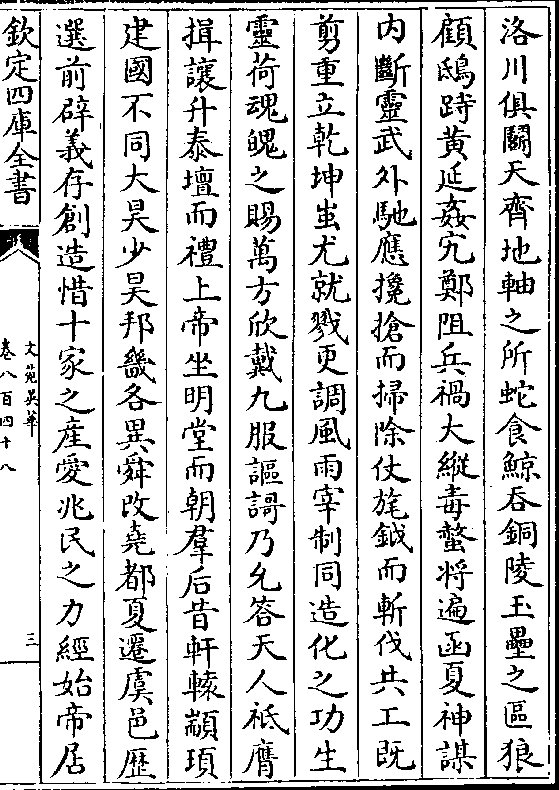 洛川俱鬭天齊地軸之所蛇食鯨吞銅陵玉壘之區狼
顧鴟跱黄延姦宄鄭阻兵禍大縱毒螫将遍函夏神謀
内斷靈武外馳應攙搶而掃除仗旄鉞而斬伐共工既
剪重立乾坤蚩尤就戮更調風雨宰制同造化之功生
靈荷魂魄之賜萬方欣戴九服謳謌乃允答天人祗膺
揖讓升泰壇而禮上帝坐明堂而朝羣后昔軒轅顓頊
建國不同大昊少昊邦畿各異舜改堯都夏遷虞邑歴
選前辟義存創造惜十家之産愛兆民之力經始帝居
欽定四庫全書
文苑英華
卷八百四十八
三